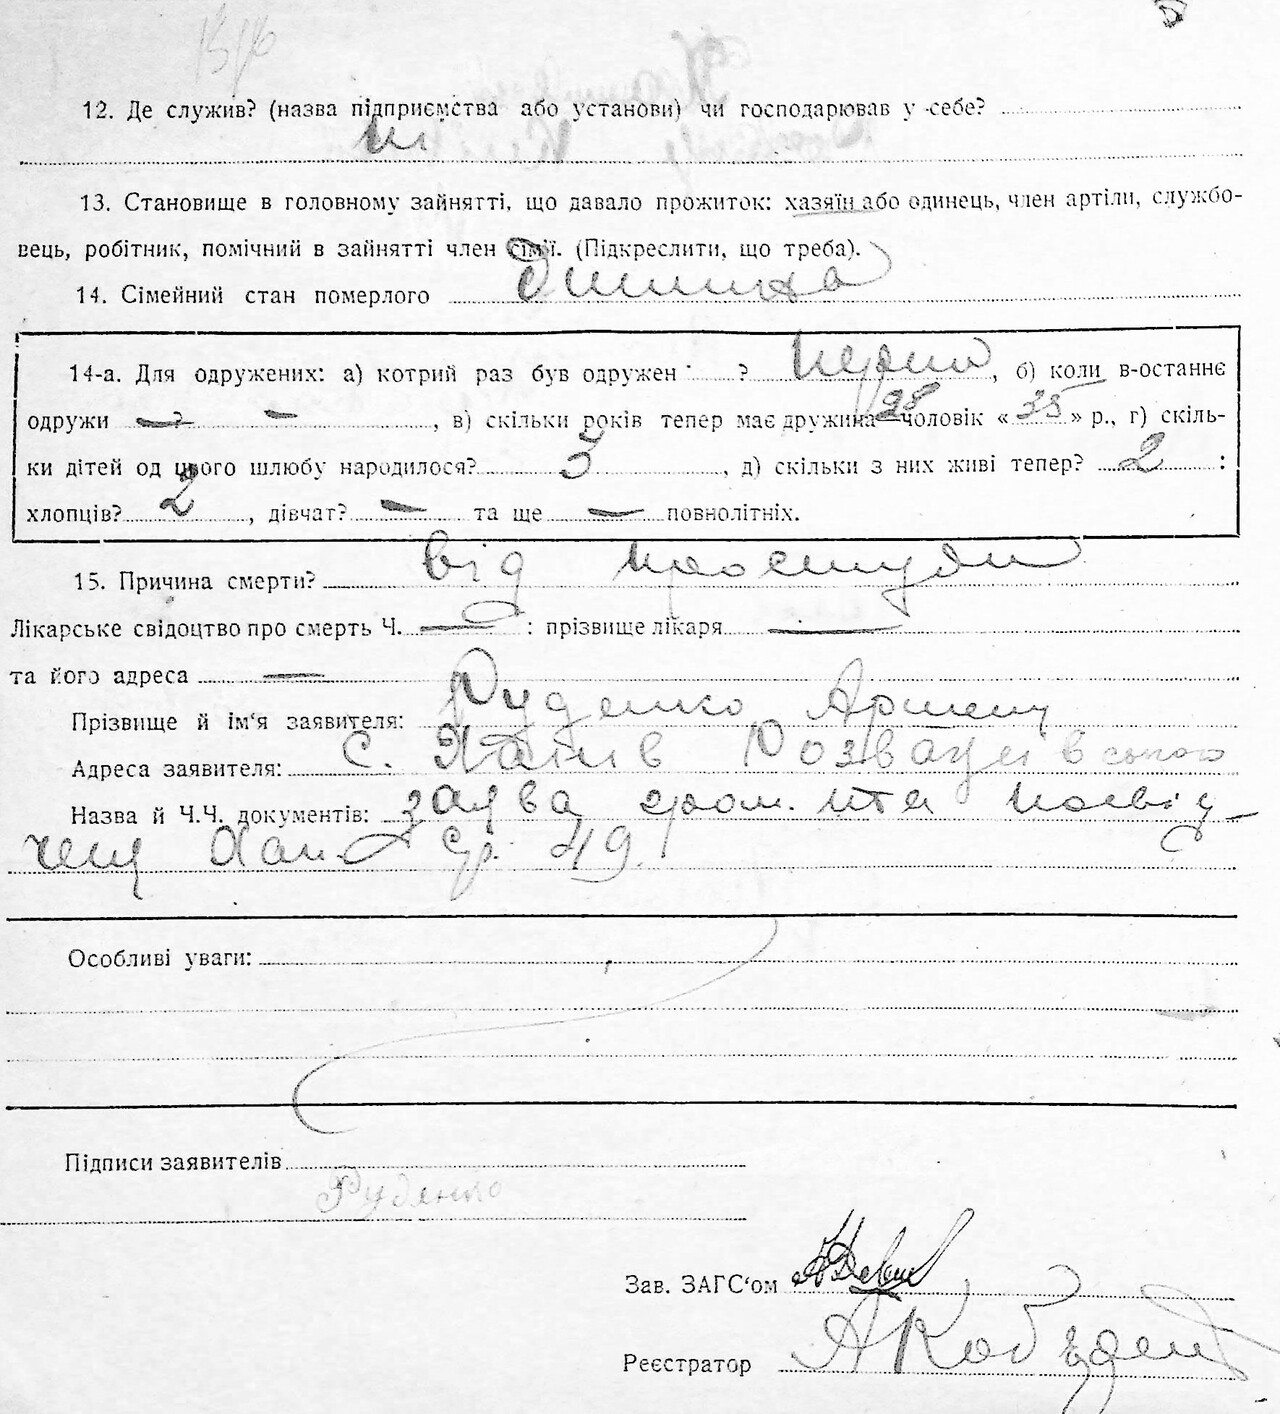 12. Де служив? (назва підприємства або установи) чи господарював у себе?
13. Становище в головному зайнятті, що давало прожиток: хазяїн або одинець, член артіли, службо-
вець, робітник, помічний в зайнятті член сімї. (Підкреслити, що треба).
14. Сімейний стан померлого дитина
14-а. Для одружених: а) котрий раз був одружен ? перший, б) коли в-останнє
одружи — ? —, в) скільки років тепер має дружина 28 чоловік « 35 » р., г) скіль-
ки дітей од цього шлюбу народилося? 3, д) скільки з них живі тепер? 2 :
хлопців? 2, дівчат? — та ще — повнолітніх.
15. Причина смерти? від простуди
Лікарське свідоцтво про смерть Ч. — : прізвище лікаря —
та його адреса —
Прізвище й ім'я заявителя: Руденко
Адреса заявителя: с. Розважівського
Назва й Ч.Ч. документів: заява гром. та посвід-
чен 49
Особливі уваги:
Підписи заявителів
Руденко
Зав. ЗАГС'ом
Реєстратор